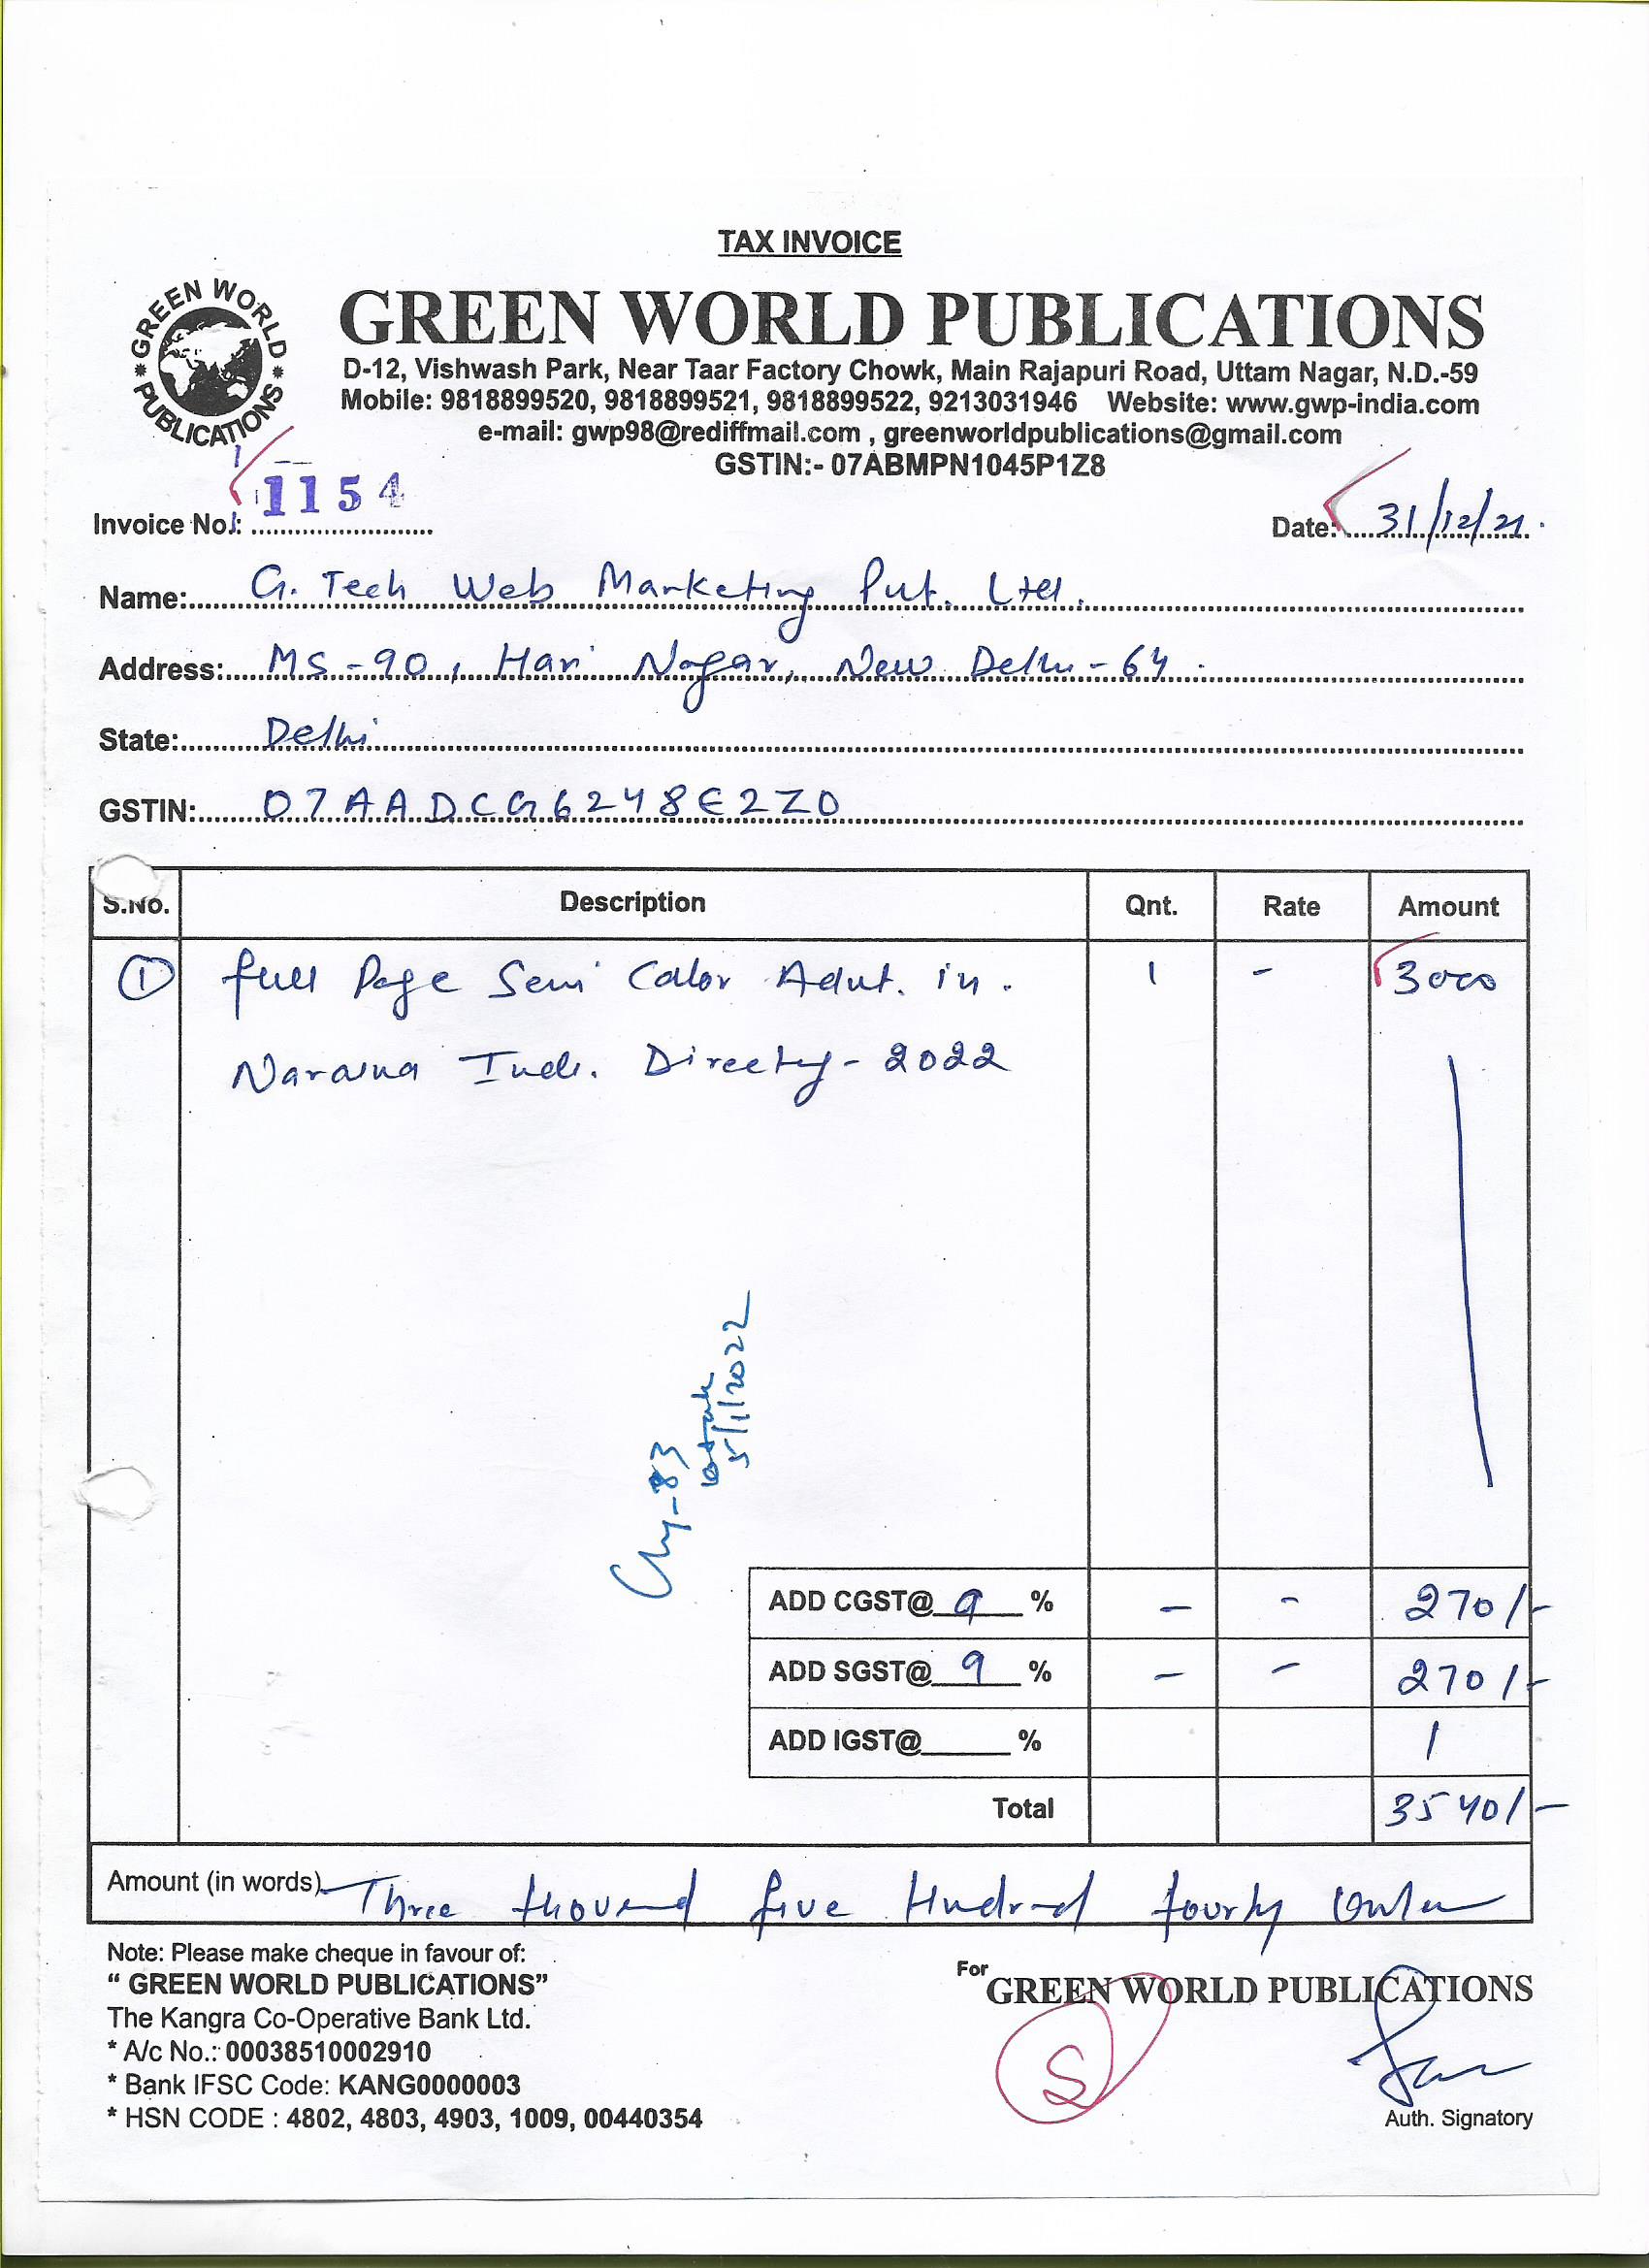 TAX INVOICE
GREEN WORLD PUBLICATIONS
GREEN WORLD PUBLICATIONS
D-12, Vishwash Park, Near Taar Factory Chowk, Main Rajapuri Road, Uttam Nagar, N.D.-59
Mobile: 9818899520, 9818899521, 9818899522, 9213031946 Website: www.gwp-india.com
e-mail: gwp98@rediffmail.com , greenworldpublications@gmail.com
GSTIN:- 07ABMPN1045P1Z8
Invoice No.: 1154 Date: 31/12/21.
Name: G. Tech Web Marketing Pvt. Ltd.
Address: MS-90, Hari Nagar, New Delhi-64.
State: Delhi
GSTIN: 07AADCG6248E2Z0
S.No. Description Qnt. Rate Amount
1 full Page Semi Color Advt. in. 1 - 3000
Naraina Indl. Directry-2022
83
5/1/2022
ADD CGST@ 9 % - - 270/-
ADD SGST@ 9 % - - 270/-
ADD IGST@ % /
Total 3540/-
Amount (in words) Three thousend five Hundred fourty Only
Note: Please make cheque in favour of:
“ GREEN WORLD PUBLICATIONS”
The Kangra Co-Operative Bank Ltd.
* A/c No.: 00038510002910
* Bank IFSC Code: KANG0000003
* HSN CODE : 4802, 4803, 4903, 1009, 00440354
For GREEN WORLD PUBLICATIONS
S
Auth. Signatory